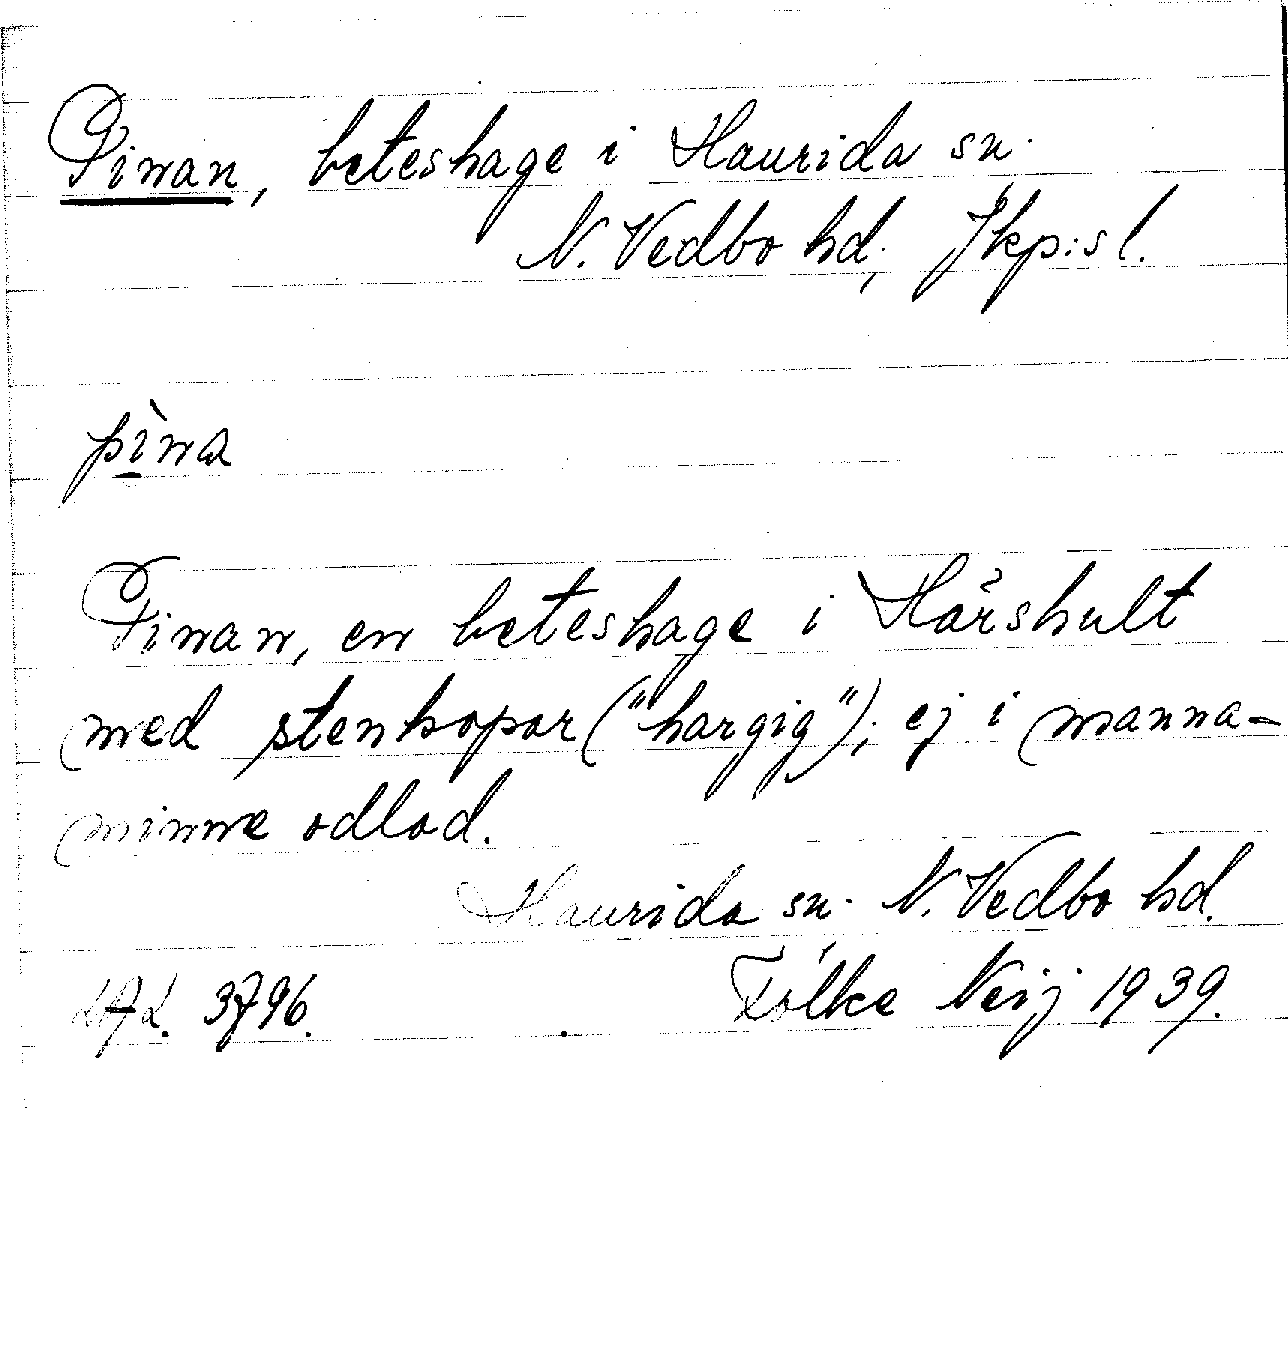 Pinan, beteshage i Haurida sn.
N. Vedbo hd, Jkp:s l.
pìna
Pinan, en beteshage i Hårshult
med stenhopar ("hargig"); ej i manna-
minne odlad.
Haurida sn. N. Vedbo hd.
3796. Folke Neij 1939.